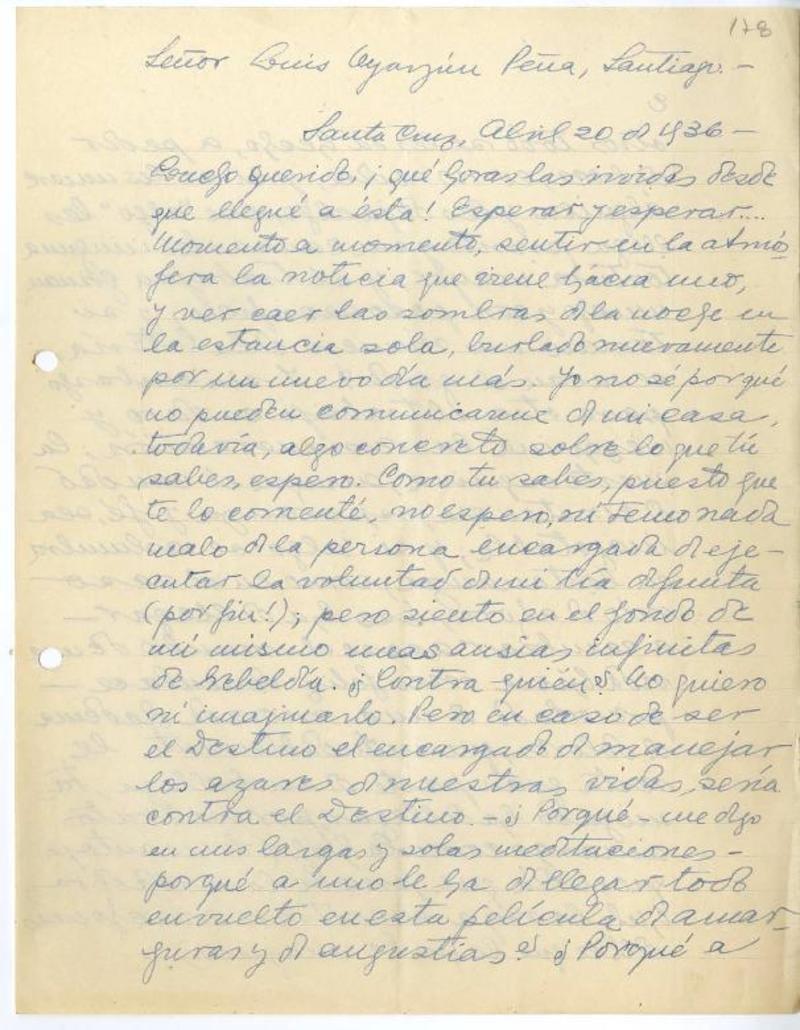 178
Señor Luis Oyarzún Peña, Santiago. -
Santa Cruz, Abril 20 de 1936 -
Conejo querido, ¡qué horas las vividas desde
que llegué a ésta! Esperar y esperar....
Momento a momento, sentir en la atmós
fera la noticia que viene hácia uno,
y ver caer las sombras de la noche en
la estancia sola, burlado nuevamente
por un nuevo día más. Yo no sé por qué
no pueden comunicarme de mi casa,
todavía, algo concreto sobre lo que tú
sabes, espero. Como tu sabes, puesto que
te lo comenté, no espero, ni temo nada
malo de la persona encargada de eje-
cutar la voluntad de mi tía difunta
(por fin!); pero siento en el fondo de
mí mismo unas ansias infinitas
de rebeldía. ¿Contra quién? No quiero
ni imajinarlo. Pero en caso de ser
el Destino el encargado de manejar
los azares de nuestras vidas, sería
contra el Destino. - ¿Porqué - me digo
en mis largas y solas meditaciones -
porqué a uno le ha de llegar todo
envuelto en esta película de amar-
guras y de angustias? ¿Porqué a